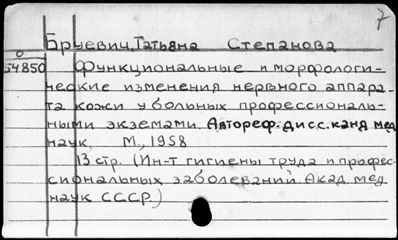 7
Бруевич, Татьяна Степанова
0
54850
Функциональные и морфологи-
ческие изменения нервного аппара-
та кожи у больных профессиональ-
ными экземами. Автореф. дисс. канд мед
наук. М., 1958
13 стр. (Ин-т гигиены труда и профес-
сиональных заболеваний Акад мед
наук СССР.)